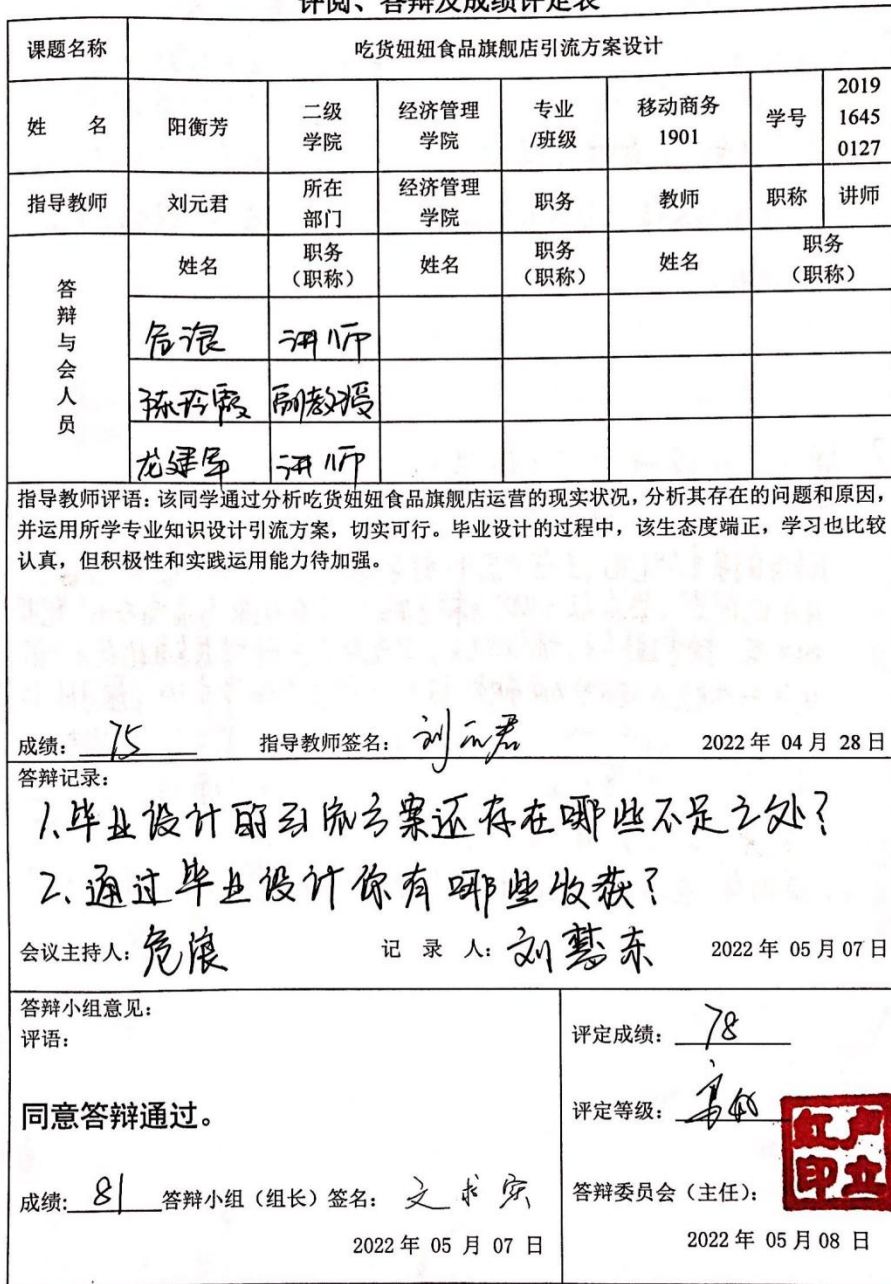 评阅、答辩及成绩评定表
课题名称 吃货妞妞食品旗舰店引流方案设计
姓 名 阳衡芳 二级学院 经济管理学院 专业/班级 移动商务1901 学号 2019 1645 0127
指导教师 刘元君 所在部门 经济管理学院 职务 教师 职称 讲师
答辩与会人员 姓名 职务（职称） 姓名 职务（职称） 姓名 职务（职称）
危浪 讲师
陈玲霞 副教授
龙建军 讲师
指导教师评语：该同学通过分析吃货妞妞食品旗舰店运营的现实状况，分析其存在的问题和原因，
并运用所学专业知识设计引流方案，切实可行。毕业设计的过程中，该生态度端正，学习也比较
认真，但积极性和实践运用能力待加强。
成绩：75 指导教师签名：刘元君 2022 年 04 月 28 日
答辩记录：
1.毕业设计的引流方案还存在哪些不足之处？
2.通过毕业设计你有哪些收获？
会议主持人：危浪 记 录 人：刘慧东 2022 年 05 月 07 日
答辩小组意见：
评语：
同意答辩通过。
成绩：81 答辩小组（组长）签名：文求实
2022 年 05 月 07 日
评定成绩：78
评定等级：
答辩委员会（主任）：卢立红印
2022 年 05 月 08 日